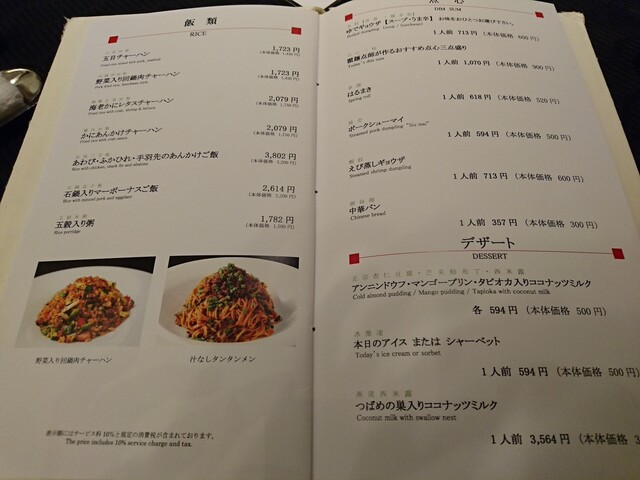 飯 類
RICE
五目チャーハン
1,723 円
野菜入り回鍋肉チャーハン
1,723 円
海老かにレタスチャーハン
2,079 円
かにあんかけチャーハン
2,079 円
あわび・ふかひれ・手羽先のあんかけご飯
3,802 円
石鍋入りマーボーナスご飯
2,614 円
五穀入り粥
1,782 円
Rice porridge
野菜入り回鍋肉チャーハン
汁なしタンタンメン
表示額にはサービス料10%と規定の消費税が含まれております。
The price includes 10% service charge and tax.
点 心
DIM SUM
ゆでギョウザ【スープ・うま辛】 お味をおひとつお選び下さい。
1 人前 713 円 (本体価格 600 円)
点心師が作るおすすめ点心三点盛り
Today's dim sum
1 人前 1,070 円 (本体価格 900 円)
はるまき
Spring roll
1 人前 618 円 (本体価格 520 円)
ポークシューマイ
Steamed pork dumpling "Siu mai"
1 人前 594 円 (本体価格 500 円)
えび蒸しギョウザ
Steamed shrimp dumpling
1 人前 713 円 (本体価格 600 円)
中華パン
Chinese bread
1 人前 357 円 (本体価格 300 円)
デザート
DESSERT
アンニンドウフ・マンゴープリン・タピオカ入りココナッツミルク
Cold almond pudding / Mango pudding / Tapioka with coconut milk
各 594 円 (本体価格 500 円)
本日のアイス または シャーベット
Today's ice cream or sorbet
1 人前 594 円 (本体価格 500 円)
つばめの巣入りココナッツミルク
Coconut milk with swallow nest
1 人前 3,564 円 (本体価格 3